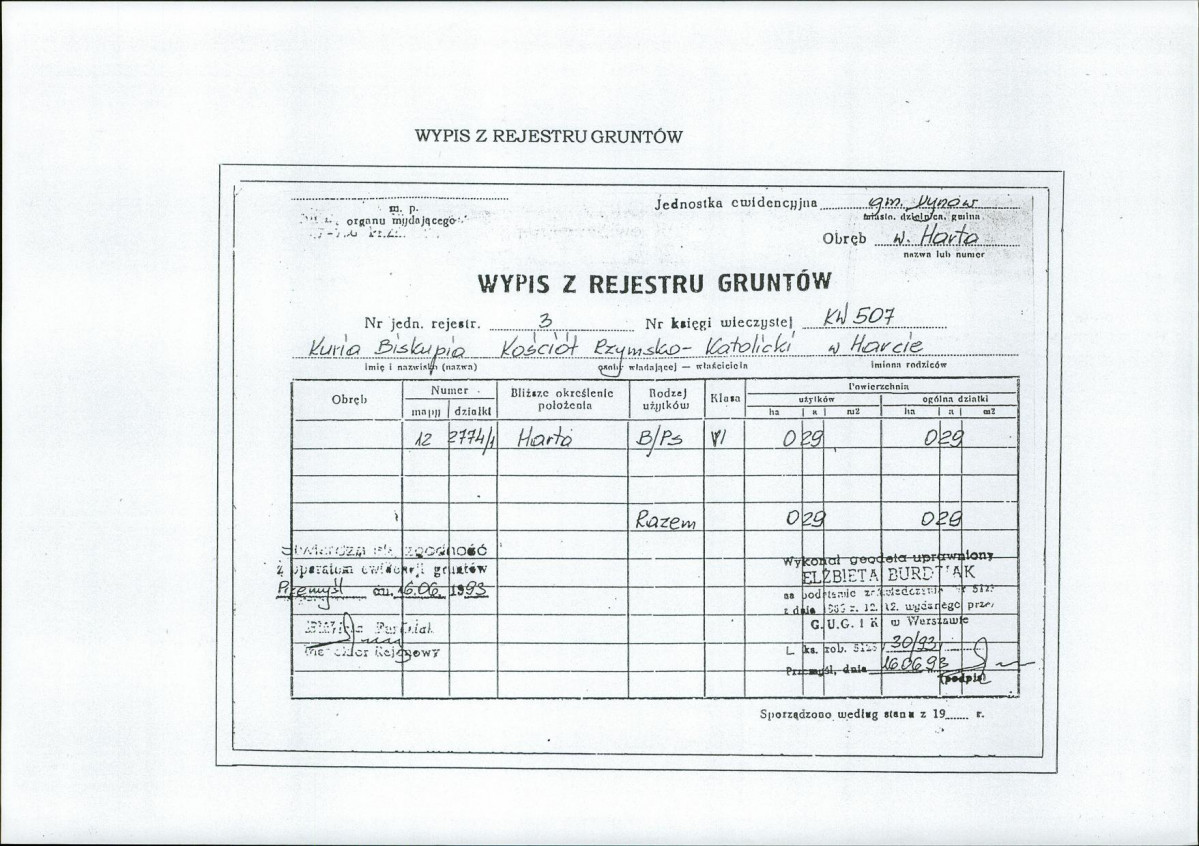 WYPIS Z REJESTRU GRUNTÓW
m. p.
organu wydającego
Jednostka ewidencyjna gm. Dynów
miasto, dzielnica, gmina
Obręb w. Harta
nazwa lub numer
WYPIS Z REJESTRU GRUNTÓW
Nr jedn. rejestr. 3 Nr księgi wieczystej KW 507
Kuria Biskupia Kościół Rzymsko-Katolicki w Harcie
imię i nazwisko (nazwa) osoby władającej — właściciela imiona rodziców
Obręb Numer Bliższe określenie położenia Rodzaj użytków Klasa Powierzchnia
mapy działki użytków ogólna działki
ha a m2 ha a m2
12 2774/1 Harta B/Ps VI 0 29 0 29
Razem 0 29 0 29
zgodność
z operatem ewidencji gruntów
Przemyśl dn. 16.06. 1993
Rejonowy
Wykonał geodeta uprawniony
ELŻBIETA
na podstawie
z dnia 12. 12. wydanego
G.U.G. i K w Warszawie
L. ks. rob. 30/93
Przemyśl, dnia 16.06.93
(podpis)
Sporządzono według stanu z 19...... r.